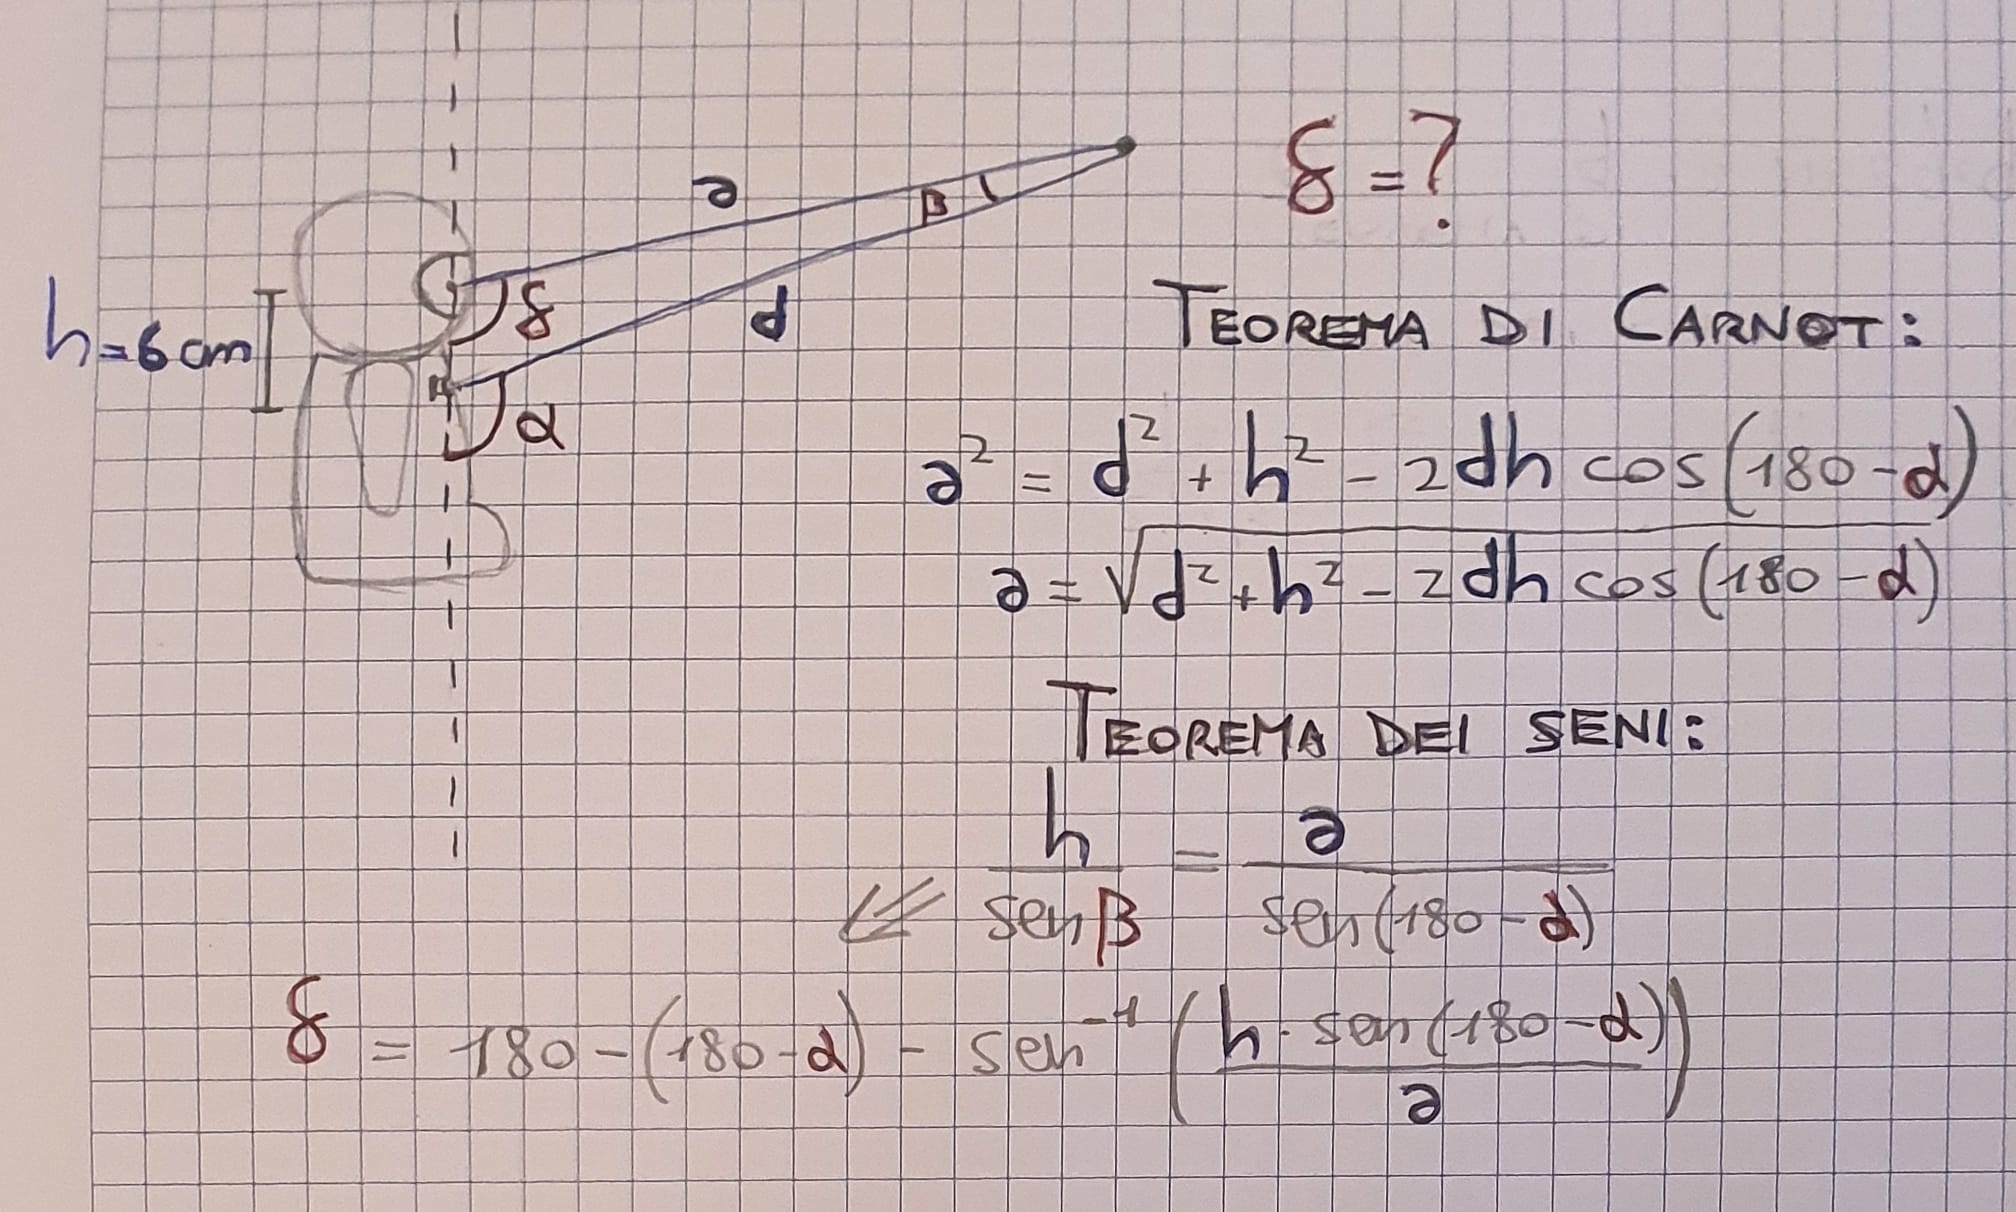 a
β
δ = ?
h = 6 cm
δ
d
α
TEOREMA DI CARNOT:
a² = d² + h² - 2dh cos(180-α)
a = √d² + h² - 2dh cos(180-α)
TEOREMA DEI SENI:
h/senβ = a/sen(180-α)
δ = 180 - (180-α) - sen⁻¹(h · sen(180-α)/a)